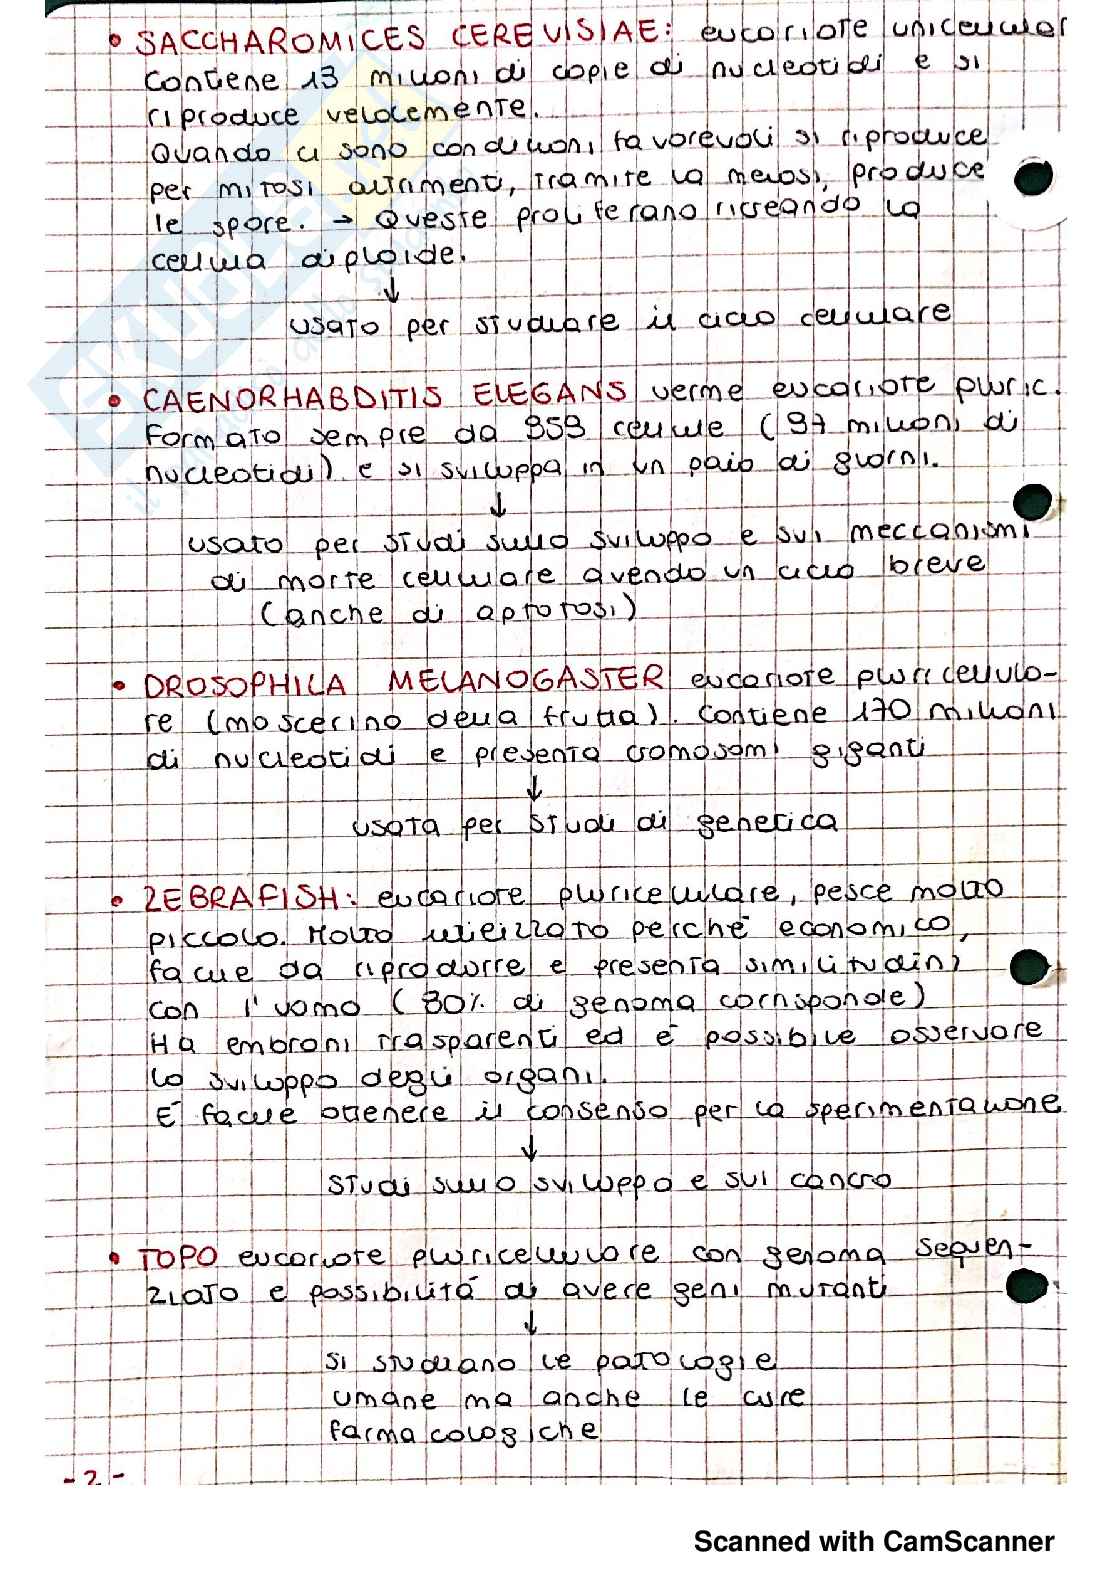 • SACCHAROMICES CEREVISIAE: eucariote unicellular
contiene 13 milioni di copie di nucleotidi e si
riproduce velocemente.
Quando ci sono condizioni favorevoli si riproduce
per mitosi altrimenti, tramite la meiosi, produce
le spore. → Queste proliferano ricreando la
cellula diploide.
↓
usato per studiare il ciclo cellulare
• CAENORHABDITIS ELEGANS verme eucariote pluric.
Formato sempre da 959 cellule (97 milioni di
nucleotidi) e si sviluppa in un paio di giorni.
↓
usato per studi sullo sviluppo e sui meccanismi
di morte cellulare avendo un ciclo breve
(anche di aptotosi)
• DROSOPHILA MELANOGASTER eucariote pluricellula-
re (moscerino della frutta). Contiene 170 milioni
di nucleotidi e presenta cromosomi giganti
↓
usata per studi di genetica
• ZEBRAFISH: eucariote pluricellulare, pesce molto
piccolo. Molto utilizzato perché economico,
facile da riprodurre e presenta similitudini
con l'uomo (80% di genoma corrisponde)
Ha embroni trasparenti ed è possibile osservare
lo sviluppo degli organi.
È facile ottenere il consenso per la sperimentazione
↓
studi sullo sviluppo e sul cancro
• TOPO eucariote pluricellulare con genoma sequen-
ziato e possibilità di avere geni mutanti
↓
si studiano le patologie
umane ma anche le cure
farmacologiche
- 2 -
Scanned with CamScanner